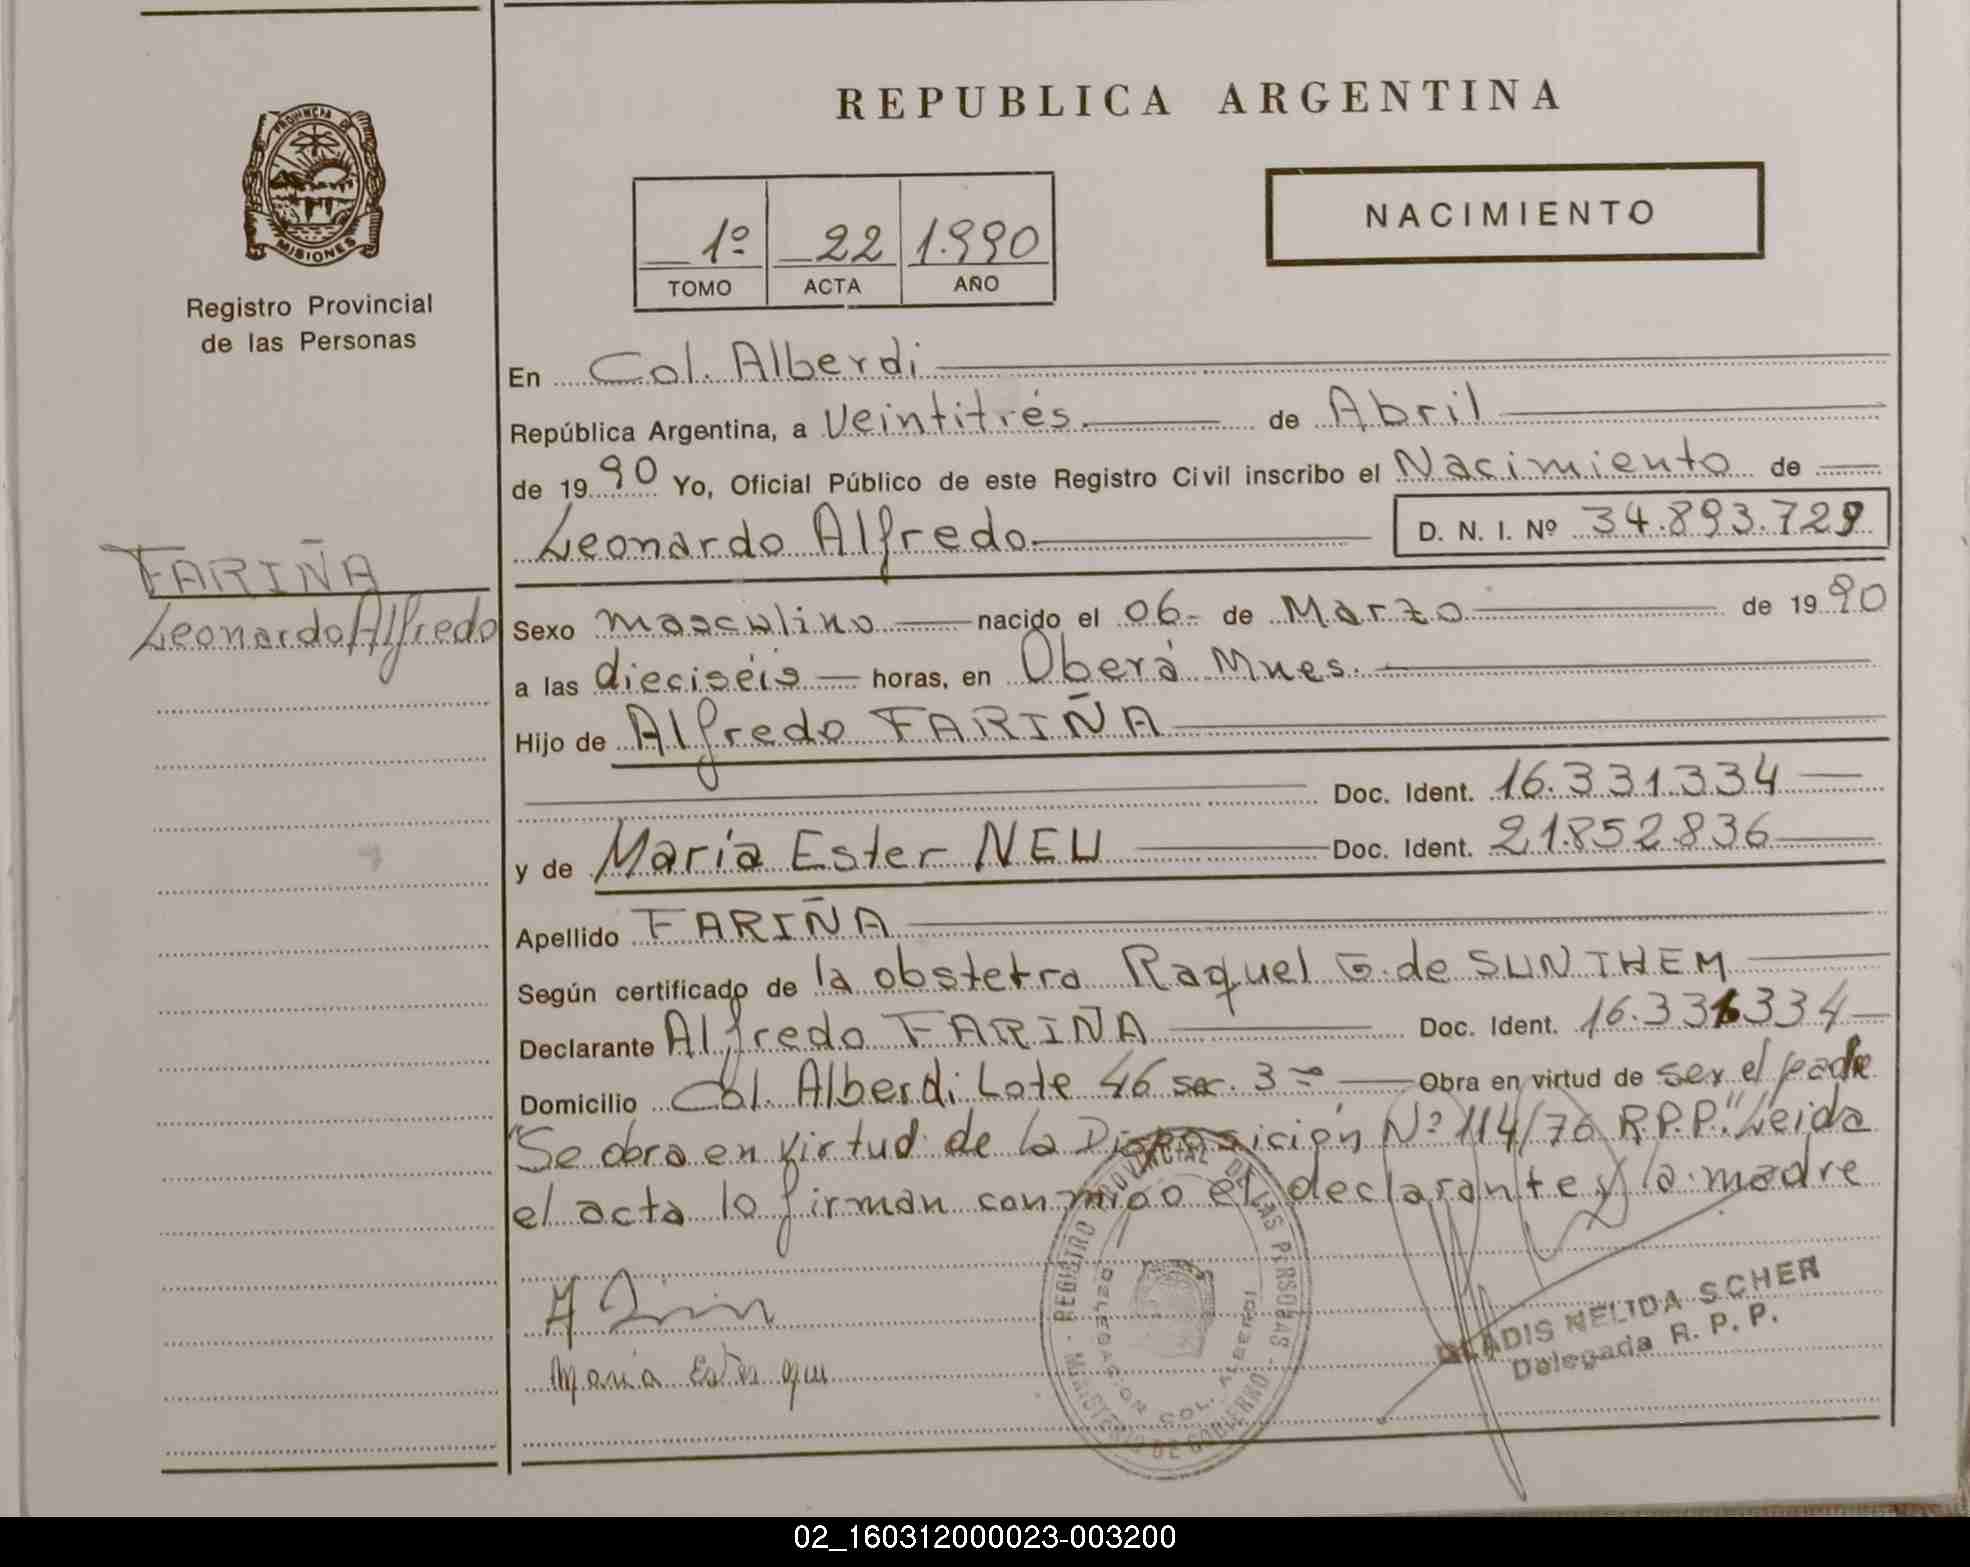 PROVINCIA DE
MISIONES
Registro Provincial
de las Personas
FARIÑA
Leonardo Alfredo
REPUBLICA ARGENTINA
1º 22 1.990
TOMO ACTA AÑO
NACIMIENTO
En Col. Alberdi
República Argentina, a Veintitrés de Abril
de 1990 Yo, Oficial Público de este Registro Civil inscribo el Nacimiento de
Leonardo Alfredo D. N. I. Nº 34.893.729
Sexo masculino nacido el 06- de Marzo de 1990
a las dieciséis horas, en Oberá Mnes.
Hijo de Alfredo FARIÑA
Doc. Ident. 16.331.334
y de María Ester NEU Doc. Ident. 21.852.836
Apellido FARIÑA
Según certificado de la obstetra Raquel G. de SUNTHEM
Declarante Alfredo FARIÑA Doc. Ident. 16.331334
Domicilio Col. Alberdi Lote 46 sec. 3ª Obra en virtud de ser el padre
"Se obra en virtud de la Disposición Nº 114/76 R.P.P." Leida
el acta lo firman conmigo el declarante y la madre
María Ester
REGISTRO PROVINCIAL DE LAS PERSONAS
MINISTERIO DE GOBIERNO
DELEGACION COL. ALBERDI
GLADIS NELIDA SCHER
Delegada R. P. P.
02_160312000023-003200